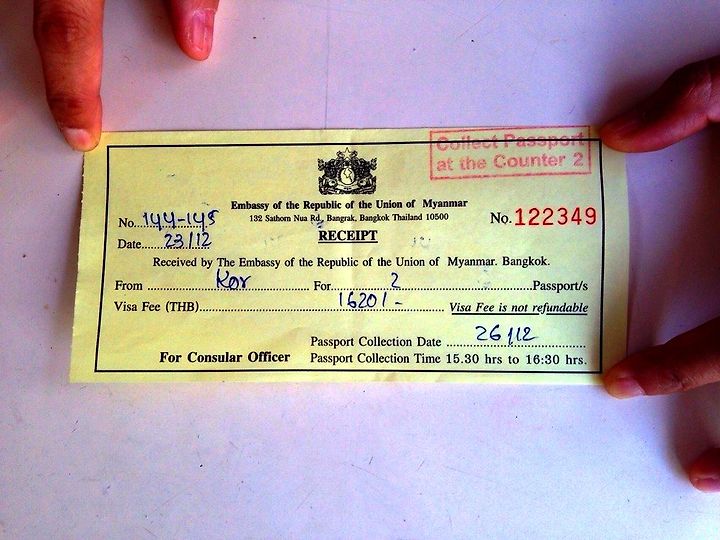 Collect Passport
at the Counter 2
Embassy of the Republic of the Union of Myanmar
132 Sathorn Nua Rd, Bangrak, Bangkok Thailand 10500
No. 144-145
No. 122349
Date 23/12
RECEIPT
Received by The Embassy of the Republic of the Union of Myanmar. Bangkok.
From Kor For 2 Passport/s
Visa Fee (THB) 1620/- Visa Fee is not refundable
Passport Collection Date 26/12
For Consular Officer Passport Collection Time 15.30 hrs to 16:30 hrs.